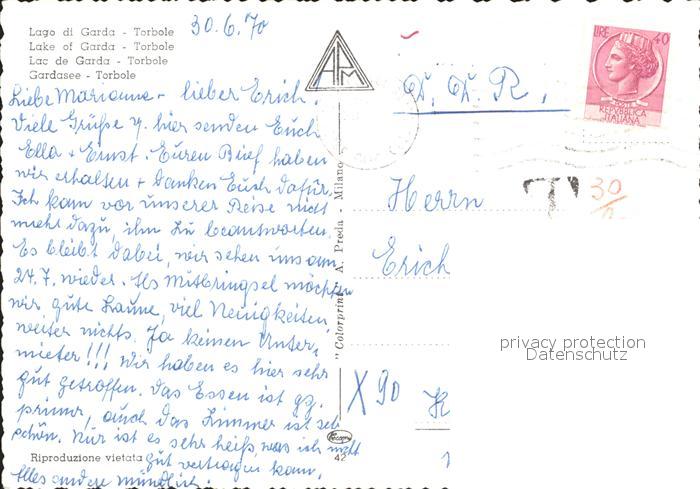 Lago di Garda - Torbole
Lake of Garda - Torbole
Lac de Garda - Torbole
Gardasee - Torbole
30.6.70
Liebe Marianne - lieber Erich!
Viele Grüße v. hier senden Euch
Ella + Ernst. Euren Brief haben
wir erhalten + danken Euch dafür.
Ich kam vor unserer Reise nicht
mehr dazu, ihn zu beantworten.
Es bleibt dabei, wir sehen uns am
24.7. wieder. Als Mitbringsel möchten
wir gute Laune, viel Neuigkeiten,
weiter nichts. Ja keinen Unter-
mieter!!! Wir haben es hier sehr
gut getroffen. Das Essen ist gz.
prima, auch das Zimmer ist seh
schön. Nur ist es sehr heiß was ich nicht
gut vertragen kann.
Alles andere mündlich.
Riproduzione vietata
42
"Colorprint" A. Preda - Milano
APM
LIRE 40
REPUBBLICA
ITALIANA
D. D. R.
T 30
Herrn
Erich
X 90
privacy protection
Datenschutz